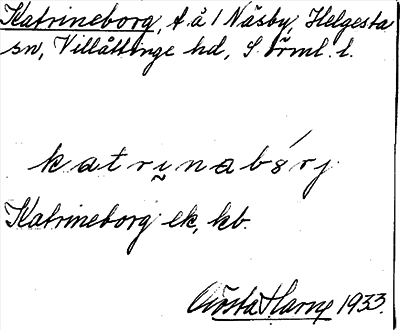 Katrineborg, t.å 1 Näsby, Helgesta
sn, Villåttinge hd, S-örml. l.
katrinabórj
Katrineborg ek, kb.
Gösta Harne 1933.